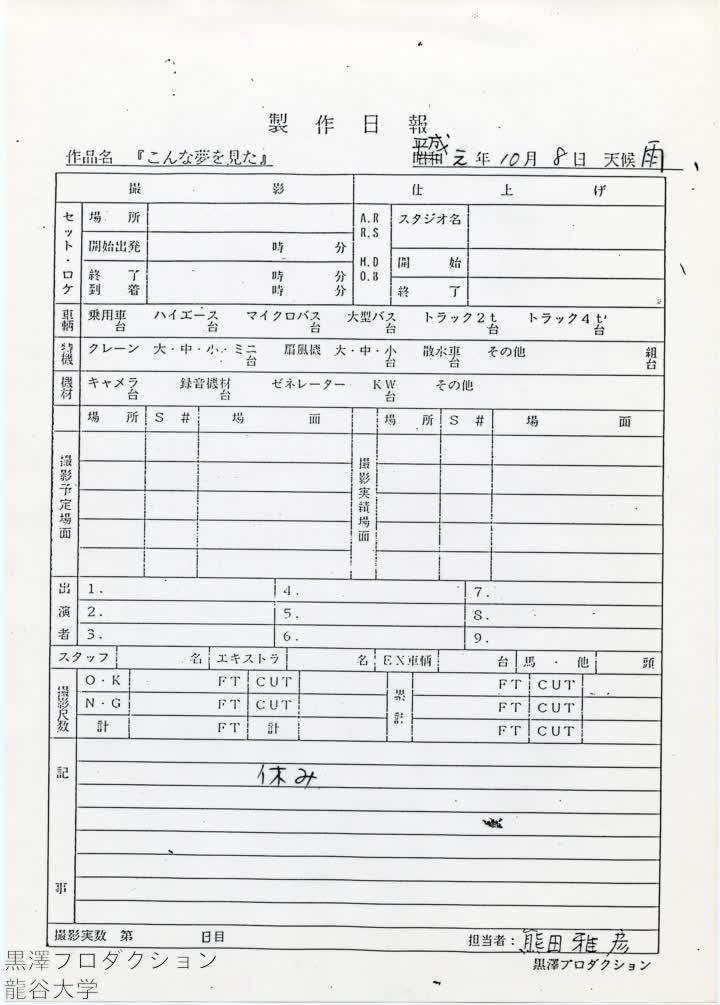 製作日報
作品名 『こんな夢を見た』 平成 昭和 元年 10月 8日 天候 雨
撮影 仕上げ
セット・ロケ 場所 A.R R.S スタジオ名
開始出発 時 分 M.D O.B 開始
終了 時 分 終了
到着 時 分
車輌 乗用車 台 ハイエース 台 マイクロバス 台 大型バス 台 トラック2t 台 トラック4t 台
特機 クレーン 大・中・小・ミニ 台 扇風機 大・中・小 台 散水車 台 その他 組 台
機材 キャメラ 台 録音機材 台 ゼネレーター KW 台 その他
場所 S# 場面 場所 S# 場面
撮影予定場面 撮影実績場面
出演者
1. 4. 7.
2. 5. 8.
3. 6. 9.
スタッフ 名 エキストラ 名 EX車輌 台 馬・他 頭
撮影尺数 O・K FT CUT 累計 FT CUT
N・G FT CUT FT CUT
計 FT 計 FT CUT
記事
休み
撮影実数 第 日目 担当者: 熊田雅彦
黒澤プロダクション
黒澤プロダクション
龍谷大学